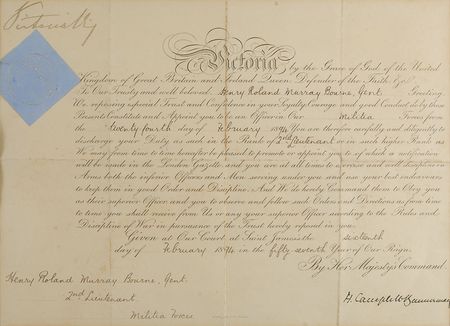 Victoria R
Victoria by the Grace of God, of the United
Kingdom of Great Britain and Ireland, Queen, Defender of the Faith, &c.
To Our Trusty and well beloved Henry Roland Murray Bourne, Gent Greeting
We reposing especial Trust and Confidence in your Loyalty, Courage and good Conduct, do by these
Presents Constitute and Appoint you to an Officer in Our Militia Forces from
the twenty fourth day of February 1894 You are therefore carefully and diligently to
discharge your Duty as such in the Rank of 2nd Lieutenant or in such higher Rank as
We may from time to time hereafter be pleased to promote or appoint you to of which a notification
will be made in the London Gazette and you are at all times to exercise and well discipline in
Arms both the inferior Officers and Men serving under you and use your best endeavours
to keep them in good Order and Discipline. And We do hereby Command them to Obey you
as their superior Officer and you to observe and follow such Orders and Directions as from time
to time you shall receive from Us or any your superior Officer according to the Rules and
Discipline of War in pursuance of the Trust hereby reposed in you.
Given at Our Court at Saint James's the sixteenth
day of February 1894 in the fifty seventh Year of Our Reign.
By Her Majesty's Command.
Henry Roland Murray Bourne, Gent.
2nd Lieutenant
Militia Forces
H. Campbell-Bannerman